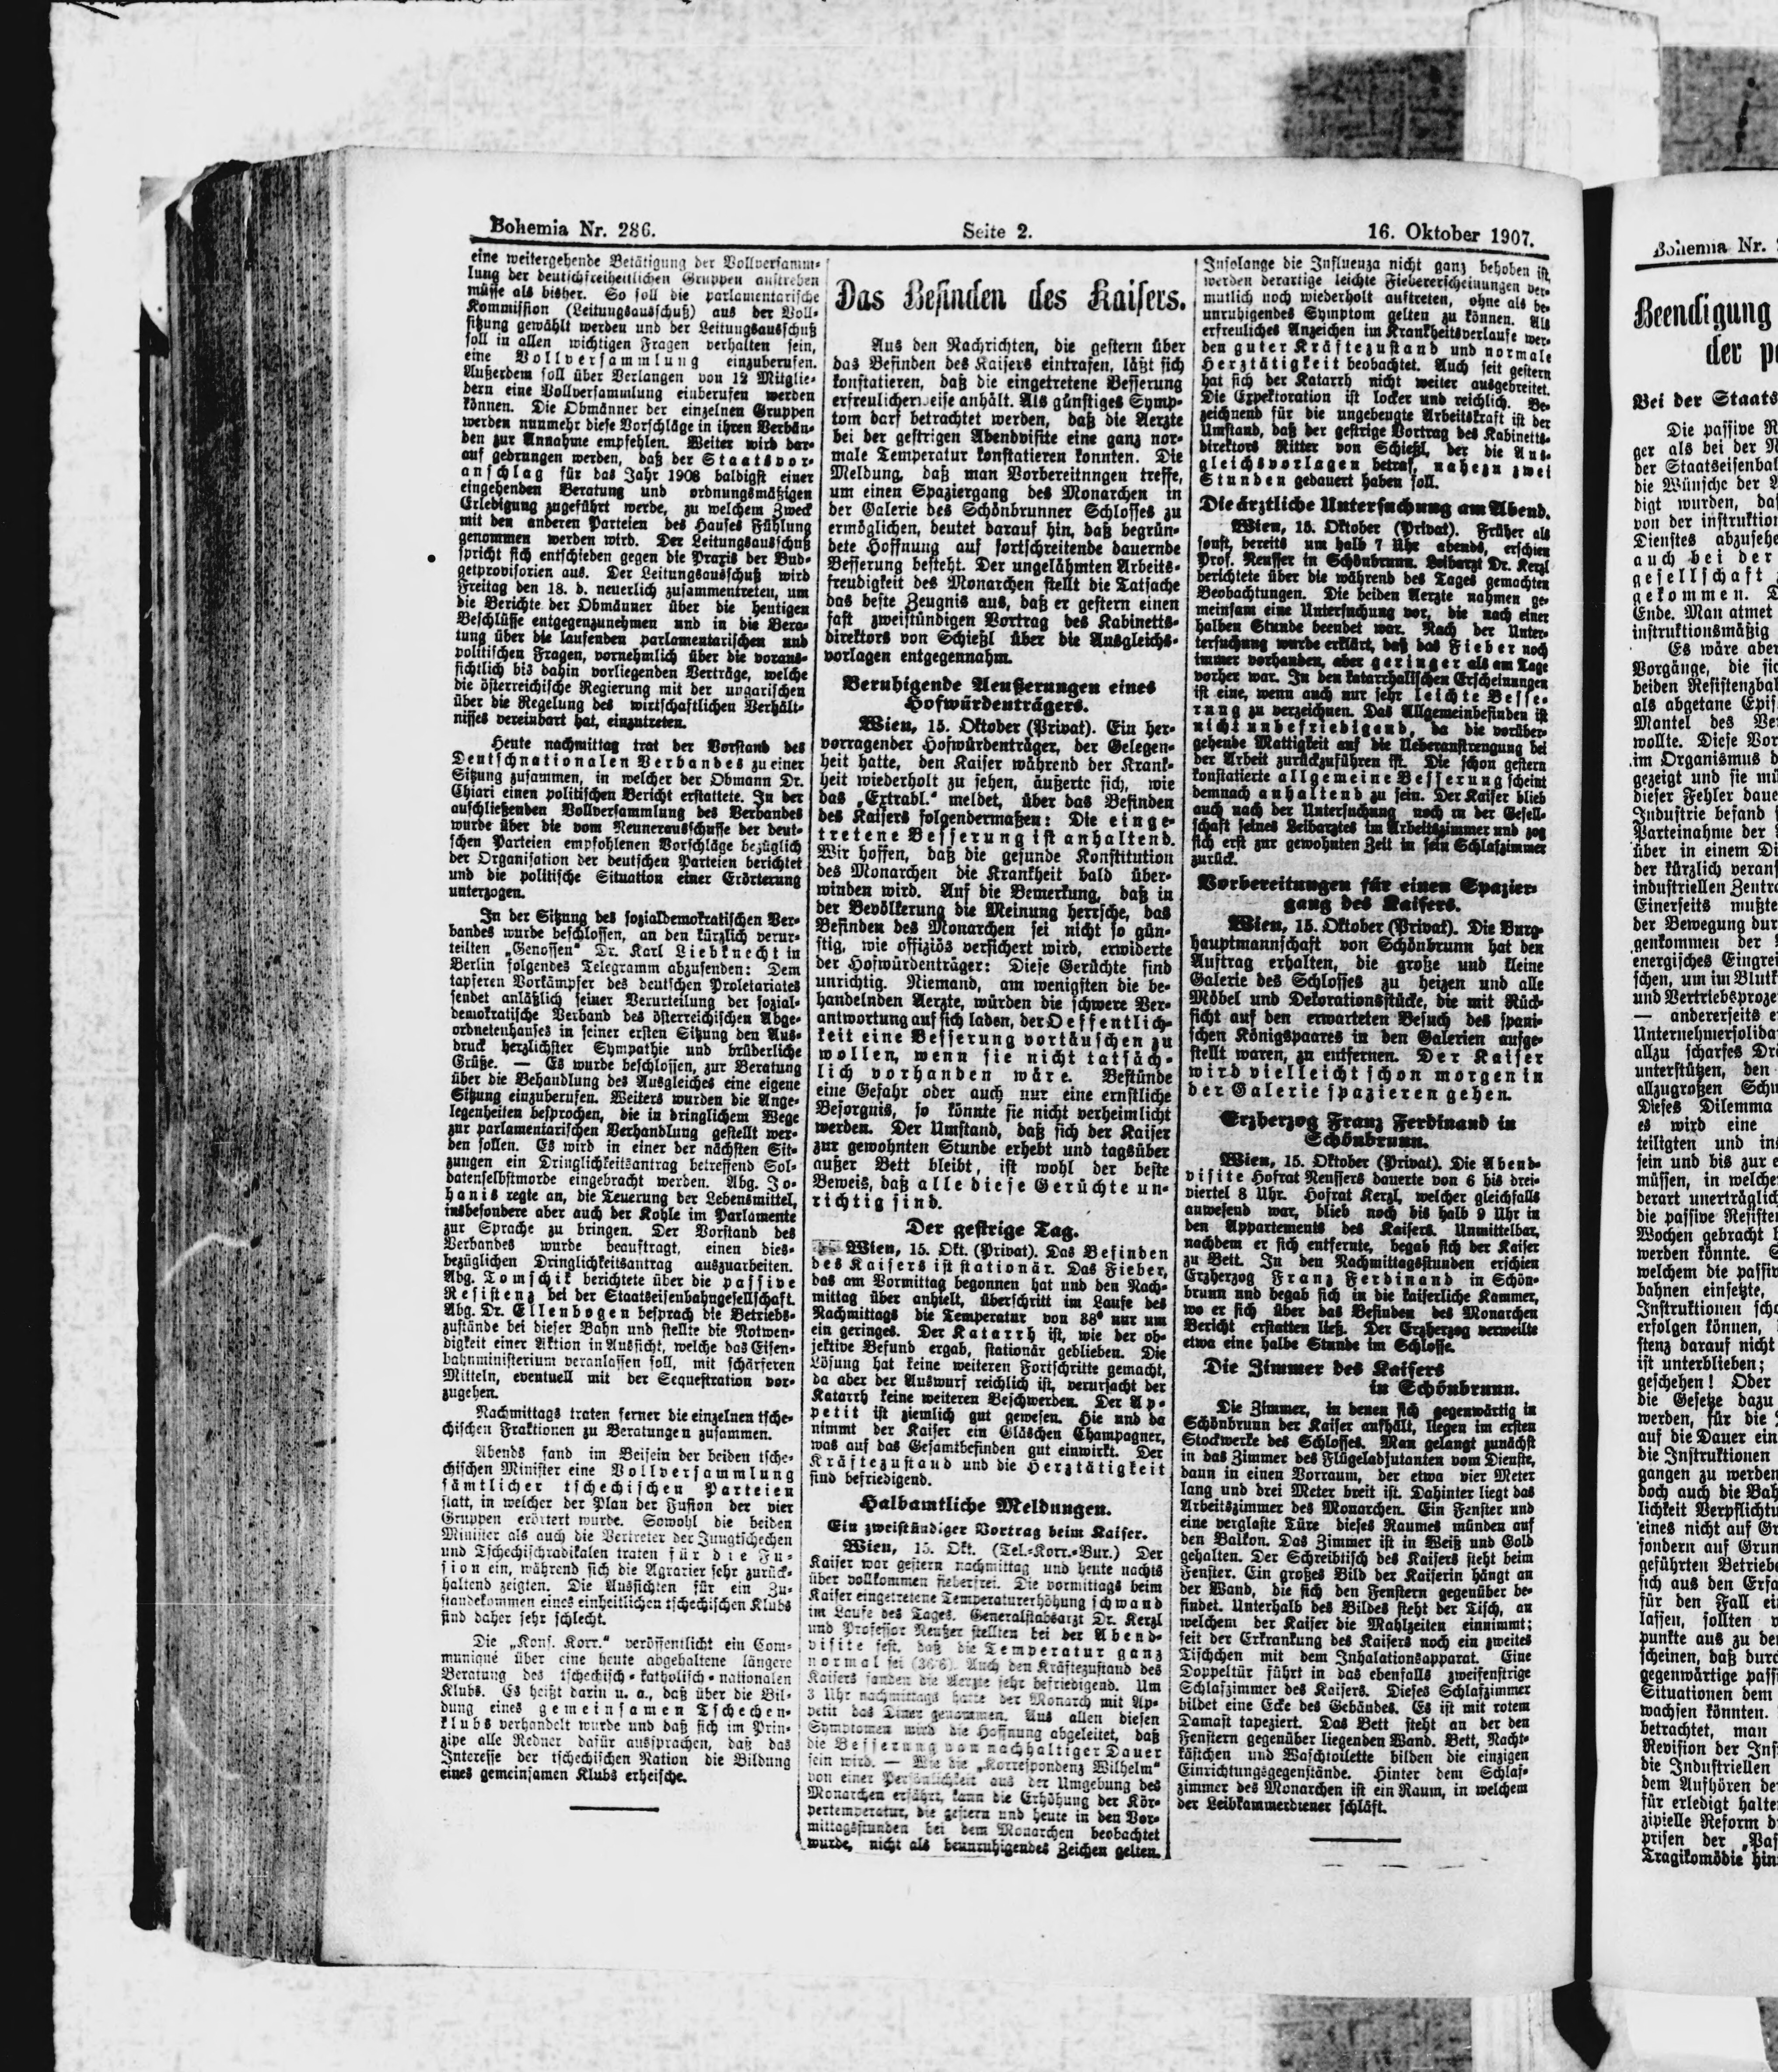 Bohemia Nr. 286.
Seite 2.
16. Oktober 1907.
eine weitergehende Betätigung der Vollversamm-
lung der deutschfreiheitlichen Gruppen anstreben
müsse als bisher. So soll die parlamentarische
Kommission (Leitungsausschuß) aus der Voll-
sitzung gewählt werden und der Leitungsausschuß
soll in allen wichtigen Fragen verhalten sein,
eine Vollversammlung einzuberufen.
Außerdem soll über Verlangen von 12 Mitglie-
dern eine Vollversammlung einberufen werden
können. Die Obmänner der einzelnen Gruppen
werden nunmehr diese Vorschläge in ihren Verbän-
den zur Annahme empfehlen. Weiter wird dar-
auf gedrungen werden, daß der Staatsvor-
anschlag für das Jahr 1908 baldigst einer
eingehenden Beratung und ordnungsmäßigen
Erledigung zugeführt werde, zu welchem Zweck
mit den anderen Parteien des Hauses Fühlung
genommen werden wird. Der Leitungsausschuß
spricht sich entschieden gegen die Praxis der Bud-
getprovisorien aus. Der Leitungsausschuß wird
Freitag den 18. d. neuerlich zusammentreten, um
die Berichte der Obmänner über die heutigen
Beschlüsse entgegenzunehmen und in die Bera-
tung über die laufenden parlamentarischen und
politischen Fragen, vornehmlich über die voraus-
sichtlich bis dahin vorliegenden Verträge, welche
die österreichische Regierung mit der ungarischen
über die Regelung des wirtschaftlichen Verhält-
nisses vereinbart hat, einzutreten.
Heute nachmittag trat der Vorstand des
Deutschnationalen Verbandes zu einer
Sitzung zusammen, in welcher der Obmann Dr.
Chiari einen politischen Bericht erstattete. In der
anschließenden Vollversammlung des Verbandes
wurde über die vom Neunerausschusse der deut-
schen Parteien empfohlenen Vorschläge bezüglich
der Organisation der deutschen Parteien berichtet
und die politische Situation einer Erörterung
unterzogen.
In der Sitzung des sozialdemokratischen Ver-
bandes wurde beschlossen, an den kürzlich verur-
teilten „Genossen“ Dr. Karl Liebknecht in
Berlin folgendes Telegramm abzusenden: Dem
tapferen Vorkämpfer des deutschen Proletariates
sendet anläßlich seiner Verurteilung der sozial-
demokratische Verband des österreichischen Abge-
ordnetenhauses in seiner ersten Sitzung den Aus-
druck herzlichster Sympathie und brüderliche
Grüße. — Es wurde beschlossen, zur Beratung
über die Behandlung des Ausgleiches eine eigene
Sitzung einzuberufen. Weiters wurden die Ange-
legenheiten besprochen, die in dringlichem Wege
zur parlamentarischen Verhandlung gestellt wer-
den sollen. Es wird in einer der nächsten Sit-
zungen ein Dringlichkeitsantrag betreffend Sol-
datenselbstmorde eingebracht werden. Abg. Jo-
hanis regte an, die Teuerung der Lebensmittel,
insbesondere aber auch der Kohle im Parlamente
zur Sprache zu bringen. Der Vorstand des
Verbandes wurde beauftragt, einen dies-
bezüglichen Dringlichkeitsantrag auszuarbeiten.
Abg. Tomschik berichtete über die passive
Resistenz bei der Staatseisenbahngesellschaft.
Abg. Dr. Ellenbogen besprach die Betriebs-
zustände bei dieser Bahn und stellte die Notwen-
digkeit einer Aktion in Aussicht, welche das Eisen-
bahnministerium veranlassen soll, mit schärferen
Mitteln, eventuell mit der Sequestration vor-
zugehen.
Nachmittags traten ferner die einzelnen tsche-
chischen Fraktionen zu Beratungen zusammen.
Abends fand im Beisein der beiden tsche-
chischen Minister eine Vollversammlung
sämtlicher tschechischen Parteien
statt, in welcher der Plan der Fusion der vier
Gruppen erörtert wurde. Sowohl die beiden
Minister als auch die Vertreter der Jungtschechen
und Tschechischradikalen traten für die Fu-
sion ein, während sich die Agrarier sehr zurück-
haltend zeigten. Die Aussichten für ein Zu-
standekommen eines einheitlichen tschechischen Klubs
sind daher sehr schlecht.
Die „Kons. Korr.“ veröffentlicht ein Com-
muniqué über eine heute abgehaltene längere
Beratung des tschechisch-katholisch-nationalen
Klubs. Es heißt darin u. a., daß über die Bil-
dung eines gemeinsamen Tschechen-
klubs verhandelt wurde und daß sich im Prin-
zipe alle Redner dafür aussprachen, daß das
Interesse der tschechischen Nation die Bildung
eines gemeinsamen Klubs erheische.
Das Befinden des Kaisers.
Aus den Nachrichten, die gestern über
das Befinden des Kaisers eintrafen, läßt sich
konstatieren, daß die eingetretene Besserung
erfreulicherweise anhält. Als günstiges Symp-
tom darf betrachtet werden, daß die Aerzte
bei der gestrigen Abendvisite eine ganz nor-
male Temperatur konstatieren konnten. Die
Meldung, daß man Vorbereitnngen treffe,
um einen Spaziergang des Monarchen in
der Galerie des Schönbrunner Schlosses zu
ermöglichen, deutet darauf hin, daß begrün-
dete Hoffnung auf fortschreitende dauernde
Besserung besteht. Der ungelähmten Arbeits-
freudigkeit des Monarchen stellt die Tatsache
das beste Zeugnis aus, daß er gestern einen
fast zweistündigen Vortrag des Kabinetts-
direktors von Schießl über die Ausgleichs-
vorlagen entgegennahm.
Beruhigende Aeußerungen eines
Hofwürdenträgers.
Wien, 15. Oktober (Privat). Ein her-
vorragender Hofwürdenträger, der Gelegen-
heit hatte, den Kaiser während der Krank-
heit wiederholt zu sehen, äußerte sich, wie
das „Extrabl.“ meldet, über das Befinden
des Kaisers folgendermaßen: Die einge-
tretene Besserung ist anhaltend.
Wir hoffen, daß die gesunde Konstitution
des Monarchen die Krankheit bald über-
winden wird. Auf die Bemerkung, daß in
der Bevölkerung die Meinung herrsche, das
Befinden des Monarchen sei nicht so gün-
stig, wie offiziös versichert wird, erwiderte
der Hofwürdenträger: Diese Gerüchte sind
unrichtig. Niemand, am wenigsten die be-
handelnden Aerzte, würden die schwere Ver-
antwortung auf sich laden, der Oeffentlich-
keit eine Besserung vortäuschen zu
wollen, wenn sie nicht tatsäch-
lich vorhanden wäre. Bestünde
eine Gefahr oder auch nur eine ernstliche
Besorgnis, so könnte sie nicht verheimlicht
werden. Der Umstand, daß sich der Kaiser
zur gewohnten Stunde erhebt und tagsüber
außer Bett bleibt, ist wohl der beste
Beweis, daß alle diese Gerüchte un-
richtig sind.
Der gestrige Tag.
Wien, 15. Okt. (Privat). Das Befinden
des Kaisers ist stationär. Das Fieber,
das am Vormittag begonnen hat und den Nach-
mittag über anhielt, überschritt im Laufe des
Nachmittags die Temperatur von 38° nur um
ein geringes. Der Katarrh ist, wie der ob-
jektive Befund ergab, stationär geblieben. Die
Lösung hat keine weiteren Fortschritte gemacht,
da aber der Auswurf reichlich ist, verursacht der
Katarrh keine weiteren Beschwerden. Der Ap-
petit ist ziemlich gut gewesen. Hie und da
nimmt der Kaiser ein Gläschen Champagner,
was auf das Gesamtbefinden gut einwirkt. Der
Kräftezustand und die Herztätigkeit
sind befriedigend.
Halbamtliche Meldungen.
Ein zweistündiger Vortrag beim Kaiser.
Wien, 15. Okt. (Tel.-Korr.-Bur.) Der
Kaiser war gestern nachmittag und heute nachts
über vollkommen fieberfrei. Die vormittags beim
Kaiser eingetretene Temperaturerhöhung schwand
im Laufe des Tages. Generalstabsarzt Dr. Kerzl
und Professor Neußer stellten bei der Abend-
visite fest, daß die Temperatur ganz
normal sei (36·6). Auch den Kräftezustand des
Kaisers fanden die Aerzte sehr befriedigend. Um
3 Uhr nachmittags hatte der Monarch mit Ap-
petit das Diner genommen. Aus allen diesen
Symptomen wird die Hoffnung abgeleitet, daß
die Besserung von nachhaltiger Dauer
sein wird. — Wie die „Korrespondenz Wilhelm“
von einer Persönlichkeit aus der Umgebung des
Monarchen erfährt, kann die Erhöhung der Kör-
pertemperatur, die gestern und heute in den Vor-
mittagsstunden bei dem Monarchen beobachtet
wurde, nicht als beunruhigendes Zeichen gelten.
Insolange die Influenza nicht ganz behoben ist,
werden derartige leichte Fiebererscheinungen ver-
mutlich noch wiederholt auftreten, ohne als be-
unruhigendes Symptom gelten zu können. Als
erfreuliches Anzeichen im Krankheitsverlaufe wer-
den guter Kräftezustand und normale
Herztätigkeit beobachtet. Auch seit gestern
hat sich der Katarrh nicht weiter ausgebreitet.
Die Expektoration ist locker und reichlich. Be-
zeichnend für die ungebeugte Arbeitskraft ist der
Umstand, daß der gestrige Vortrag des Kabinetts-
direktors Ritter von Schießl, der die Aus-
gleichsvorlagen betraf, nahezu zwei
Stunden gedauert haben soll.
Die ärztliche Untersuchung am Abend.
Wien, 15. Oktober (Privat). Früher als
sonst, bereits um halb 7 Uhr abends, erschien
Prof. Neusser in Schönbrunn. Leibarzt Dr. Kerzl
berichtete über die während des Tages gemachten
Beobachtungen. Die beiden Aerzte nahmen ge-
meinsam eine Untersuchung vor, die nach einer
halben Stunde beendet war. Nach der Unter-
tersuchung wurde erklärt, daß das Fieber noch
immer vorhanden, aber geringer als am Tage
vorher war. In den katarrhalischen Erscheinungen
ist eine, wenn auch nur sehr leichte Besse-
rung zu verzeichnen. Das Allgemeinbefinden ist
nicht unbefriedigend, da die vorüber-
gehende Mattigkeit auf die Ueberanstrengung bei
der Arbeit zurückzuführen ist. Die schon gestern
konstatierte allgemeine Besserung scheint
demnach anhaltend zu sein. Der Kaiser blieb
auch nach der Untersuchung noch in der Gesell-
schaft seines Leibarztes im Arbeitszimmer und zog
sich erst zur gewohnten Zeit in sein Schlafzimmer
zurück.
Vorbereitungen für einen Spazier-
gang des Kaisers.
Wien, 15. Oktober (Privat). Die Burg-
hauptmannschaft von Schönbrunn hat den
Auftrag erhalten, die große und kleine
Galerie des Schlosses zu heizen und alle
Möbel und Dekorationsstücke, die mit Rück-
sicht auf den erwarteten Besuch des spani-
schen Königspaares in den Galerien aufge-
stellt waren, zu entfernen. Der Kaiser
wird vielleicht schon morgen in
der Galerie spazieren gehen.
Erzherzog Franz Ferdinand in
Schönbrunn.
Wien, 15. Oktober (Privat). Die Abend-
visite Hofrat Neussers dauerte von 6 bis drei-
viertel 8 Uhr. Hofrat Kerzl, welcher gleichfalls
anwesend war, blieb noch bis halb 9 Uhr in
den Appartements des Kaisers. Unmittelbar,
nachdem er sich entfernte, begab sich der Kaiser
zu Bett. In den Nachmittagsstunden erschien
Erzherzog Franz Ferdinand in Schön-
brunn und begab sich in die kaiserliche Kammer,
wo er sich über das Befinden des Monarchen
Bericht erstatten ließ. Der Erzherzog verweilte
etwa eine halbe Stunde im Schlosse.
Die Zimmer des Kaisers
in Schönbrunn.
Die Zimmer, in denen sich gegenwärtig in
Schönbrunn der Kaiser aufhält, liegen im ersten
Stockwerke des Schlosses. Man gelangt zunächst
in das Zimmer des Flügeladjutanten vom Dienste,
dann in einen Vorraum, der etwa vier Meter
lang und drei Meter breit ist. Dahinter liegt das
Arbeitszimmer des Monarchen. Ein Fenster und
eine verglaste Türe dieses Raumes münden auf
den Balkon. Das Zimmer ist in Weiß und Gold
gehalten. Der Schreibtisch des Kaisers steht beim
Fenster. Ein großes Bild der Kaiserin hängt an
der Wand, die sich den Fenstern gegenüber be-
findet. Unterhalb des Bildes steht der Tisch, an
welchem der Kaiser die Mahlzeiten einnimmt;
seit der Erkrankung des Kaisers noch ein zweites
Tischchen mit dem Inhalationsapparat. Eine
Doppeltür führt in das ebenfalls zweifenstrige
Schlafzimmer des Kaisers. Dieses Schlafzimmer
bildet eine Ecke des Gebäudes. Es ist mit rotem
Damast tapeziert. Das Bett steht an der den
Fenstern gegenüber liegenden Wand. Bett, Nacht-
kästchen und Waschtoilette bilden die einzigen
Einrichtungsgegenstände. Hinter dem Schlaf-
zimmer des Monarchen ist ein Raum, in welchem
der Leibkammerdiener schläft.
Bohemia Nr.
Beendigung
der
Bei der Staats
Die passive
ger als bei der
der Staatseisenbal
die Wünsche der
digt wurden, daß
von der instruktion
Dienstes abzusehe
auch bei der
gesellschaft
gekommen.
Ende. Man atmet
instruktionsmäßig
Es wäre aber
Vorgänge, die sic
beiden Resistenzbal
als abgetane Epis
Mantel des Ver
wollte. Diese Vor
im Organismus d
gezeigt und sie mü
dieser Fehler daue
Industrie befand
Parteinahme der
über in einem Di
der kürzlich verans
industriellen Zentra
Einerseits mußte
der Bewegung dur
genkommen der
energisches Eingrei
schen, um im Blutk
und Vertriebsproze
— andererseits e
Unternehmersolida
allzu scharfes Dr
unterstützen, den
allzugroßen Sch
Dieses Dilemma
es wird eine
teiligten und in
sein und bis zur e
müssen, in welche
derart unerträglich
die passive Resisten
Wochen gebracht h
werden könnte.
welchem die passiv
bahnen einsetzte,
Instruktionen sch
erfolgen können,
stenz darauf nicht
ist unterblieben;
geschehen! Oder
die Gesetze dazu
werden, für die
auf die Dauer ein
die Instruktionen
gangen zu werden
doch auch die Bah
lichkeit Verpflichtu
eines nicht auf Gr
sondern auf Grun
geführten Betriebe
sich aus den Erfa
für den Fall ei
lassen, sollten
punkte aus zu de
scheinen, daß durc
gegenwärtige passi
Situationen dem
wachsen könnten.
betrachtet, man
Revision der Ins
die Industriellen
dem Aufhören de
für erledigt halte
zipielle Reform d
prisen der „Pas
Tragikomödie hin